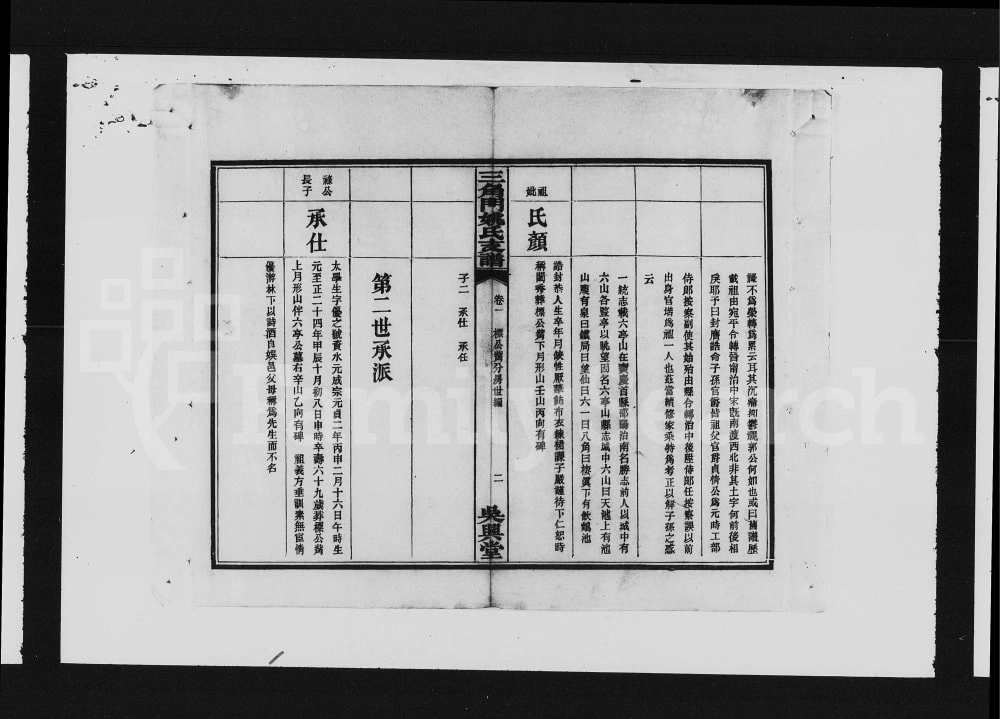 謙不爲榮轉爲累云耳其沉痛抑鬱視郭公何如也或曰舊譜歷
戴祖由宛平令轉晉甯治中宋旣南渡西北非其土宇何前後相
戾耶予曰封廕誥命子孫官爵皆祖父官爵貞倩公爲元時工部
侍郎按察副使其始殆由縣令轉治中後陞侍郎任按察誤以前
出身官堦爲祖一人也茲當續修家乘特爲考正以解子孫之惑
云
一統志載六亭山在寶慶首縣邵陽治南名勝志前人以城中有
六山各豎亭以眺望因名六亭山縣志城中六山曰天池上有池
山麓有泉曰鐵局曰望仙曰六一曰八角曰棲眞下有飲鶴池
祖妣
氏顏
誥封恭人生卒年月缺性厭華飾布衣練裙課子嚴謹待下仁恕時
稱閨秀葬標公塋下月形山壬山丙向有碑
子二 承仕 承任
三角門姚氏支譜
卷一 標公塋分房世編
二
吳興堂
第二世承派
祿公長子
承仕
太學生字優之號資水元成宗元貞二年丙申二月十六日午時生
元至正二十四年甲辰十月初八日申時卒壽六十九歲葬標公塋
上月形山伴六亭公墓右辛山乙向有碑 祖義方垂訓素無宦情
優游林下以詩酒自娛邑父母稱爲先生而不名